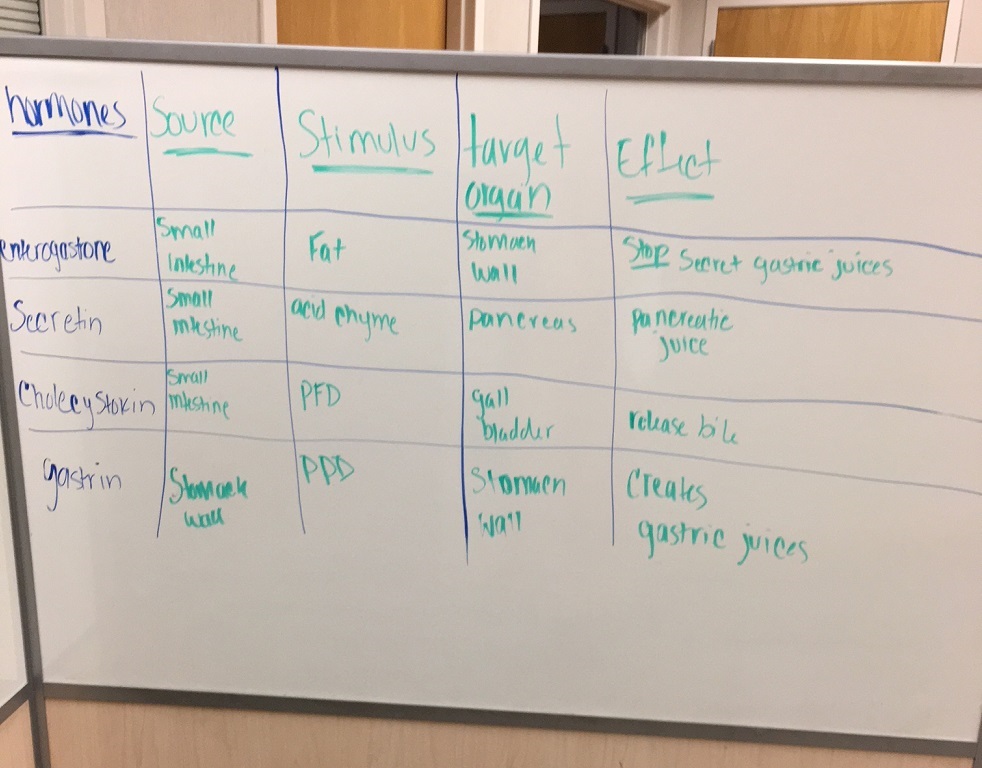 hormones
Source
Stimulus
target
organ
Effect
enterogastone
Small
Intestine
Fat
Stomach
wall
Stop Secret gastric juices
Secretin
Small
intestine
acid chyme
pancreas
pancreatic
juice
Cholecystokin
Small
intestine
PFD
gall
bladder
release bile
gastrin
Stomach
wall
PPD
Stomach
wall
Creates
gastric juices